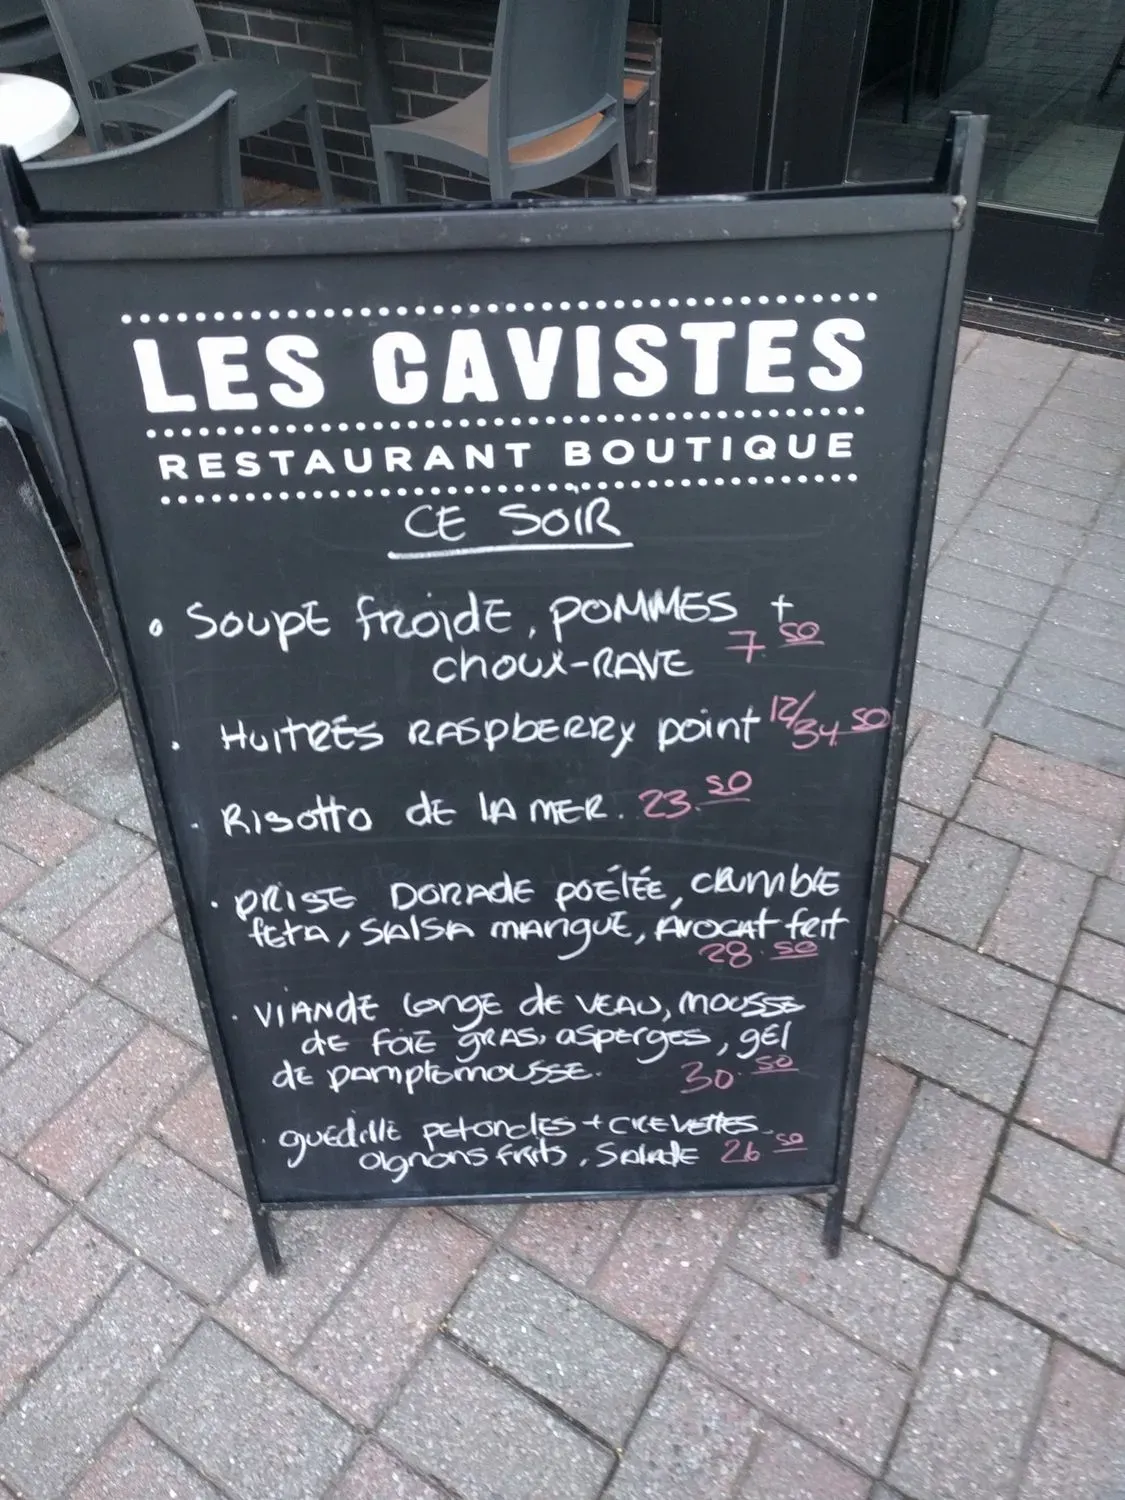 LES CAVISTES
RESTAURANT BOUTIQUE
CE SOIR
• SOUPE froide, POMMES +
CHOUX-RAVE 7.50
• HUITRES RASPBERRY POINT 12/34.50
• RISOTTO DE LA MER. 23.50
• PRISE DORADE POÊLÉE, CRUMBLE
fETA, SALSA MANGUE, AVOCAT frit
28.50
• VIANDE LONGE DE VEAU, MOUSSE
DE FOIE GRAS, asperges, gEl
DE PAMPLEMOUSSE. 30.50
• guédille pétoncles + CREVETTES
oignons frits, Salade 26.50